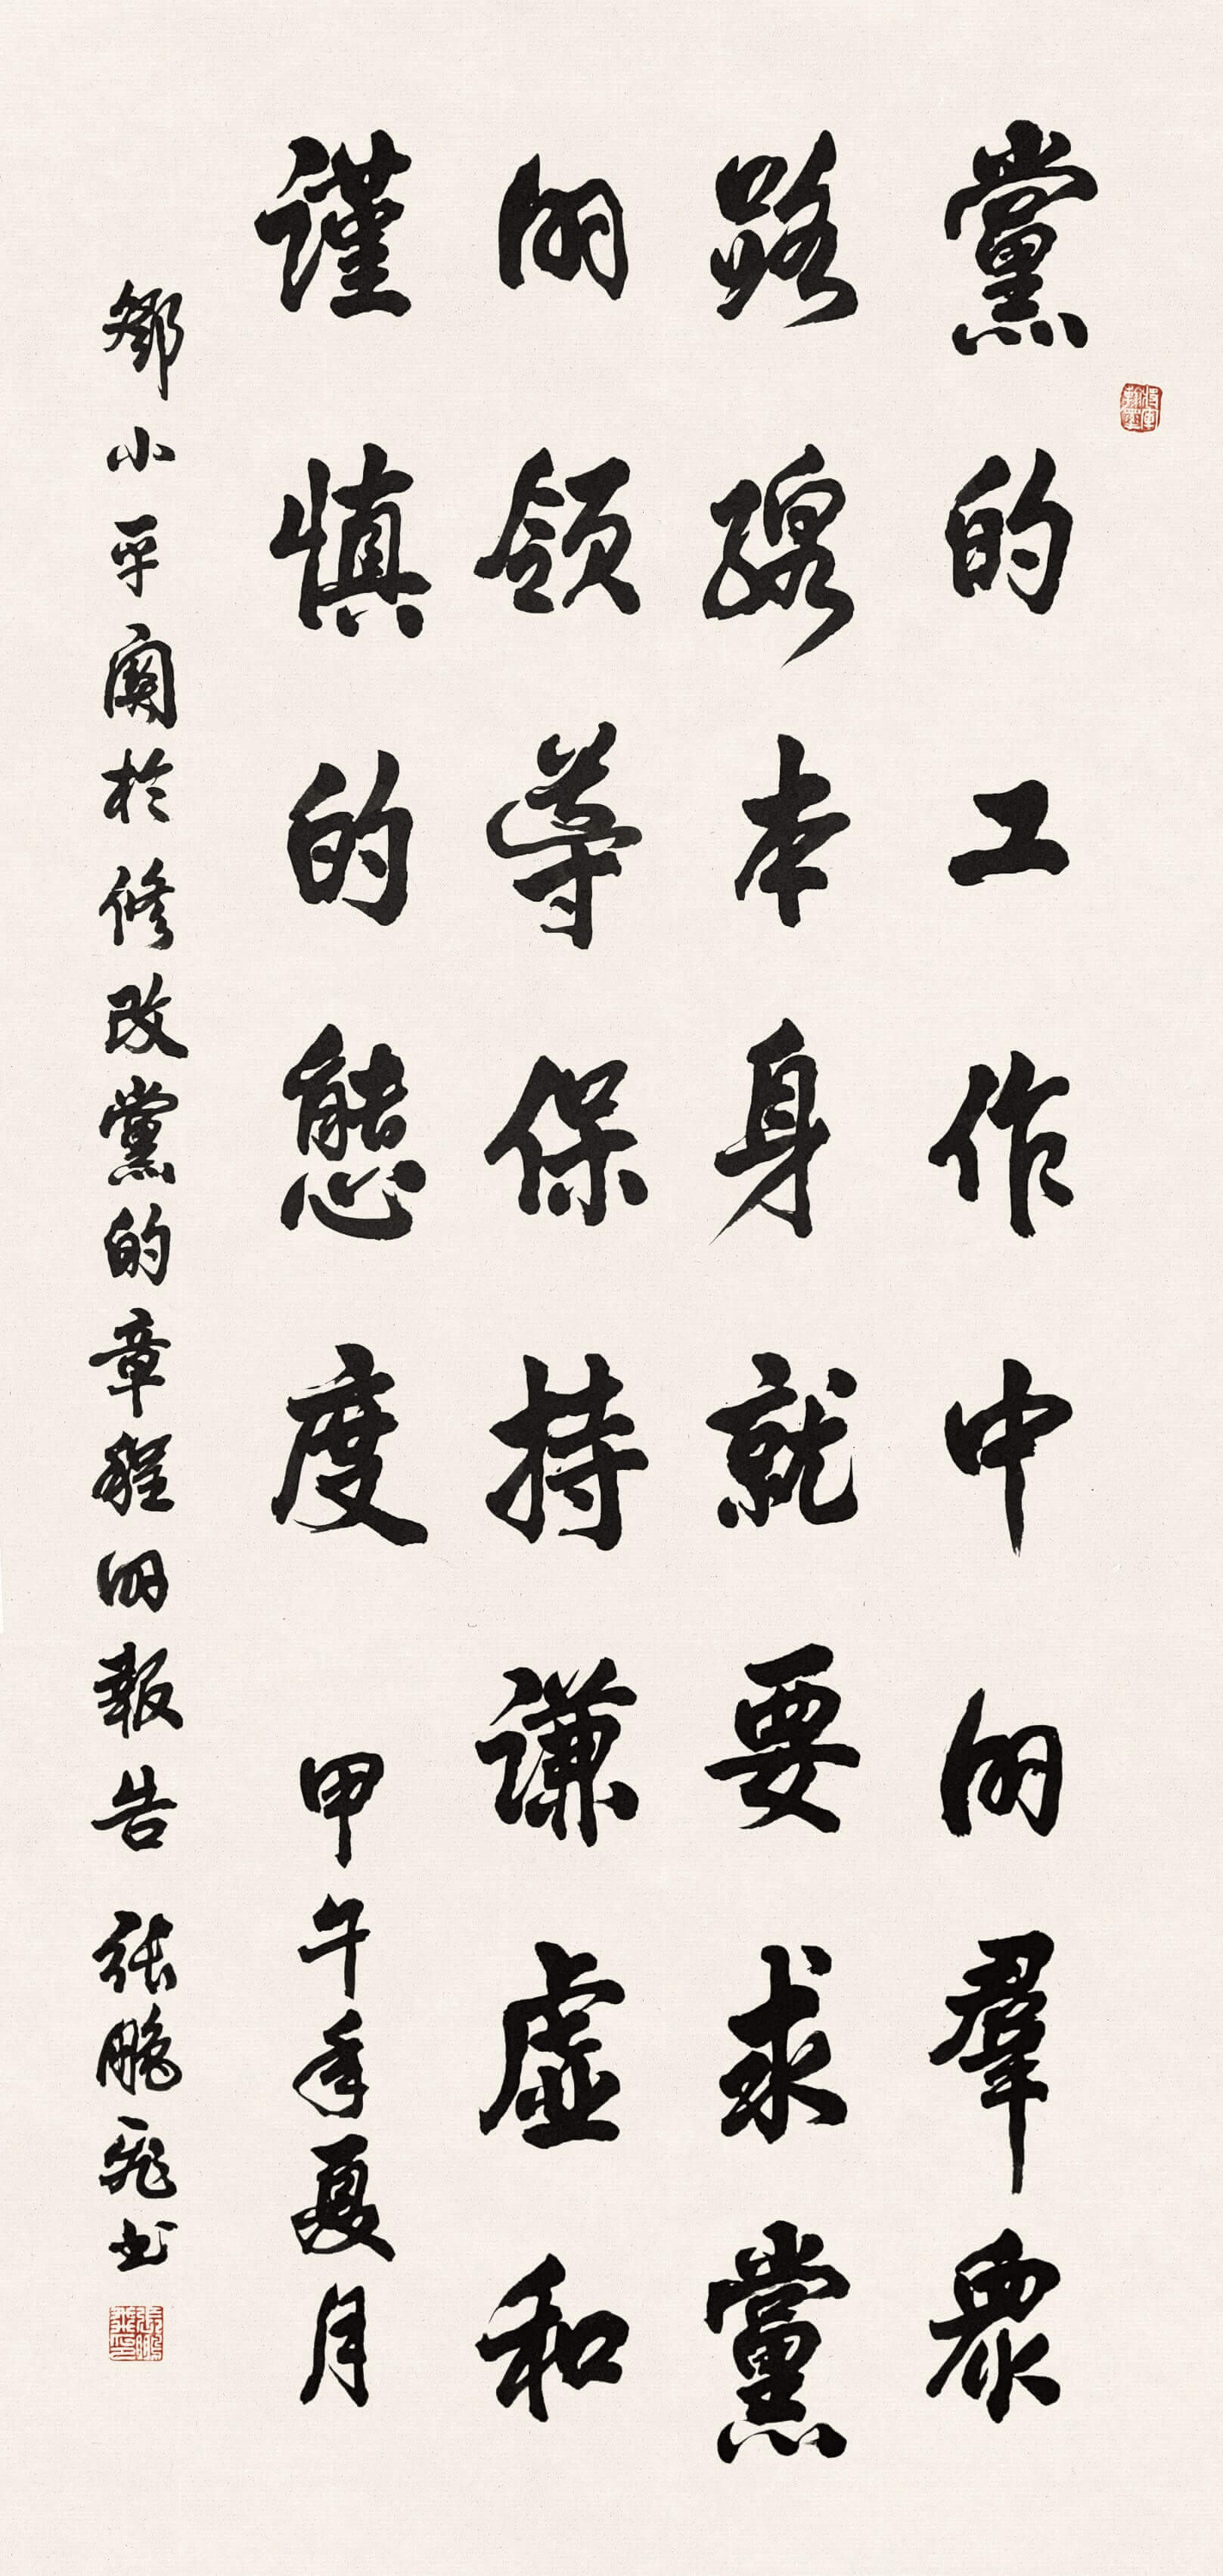 黨的工作中的羣衆
路線本身就要求黨
的領導保持謙虛和
謹慎的態度 甲午年夏月
鄧小平關於修改黨的章程的報告 張鵬飛書
將軍翰墨
張鵬飛印